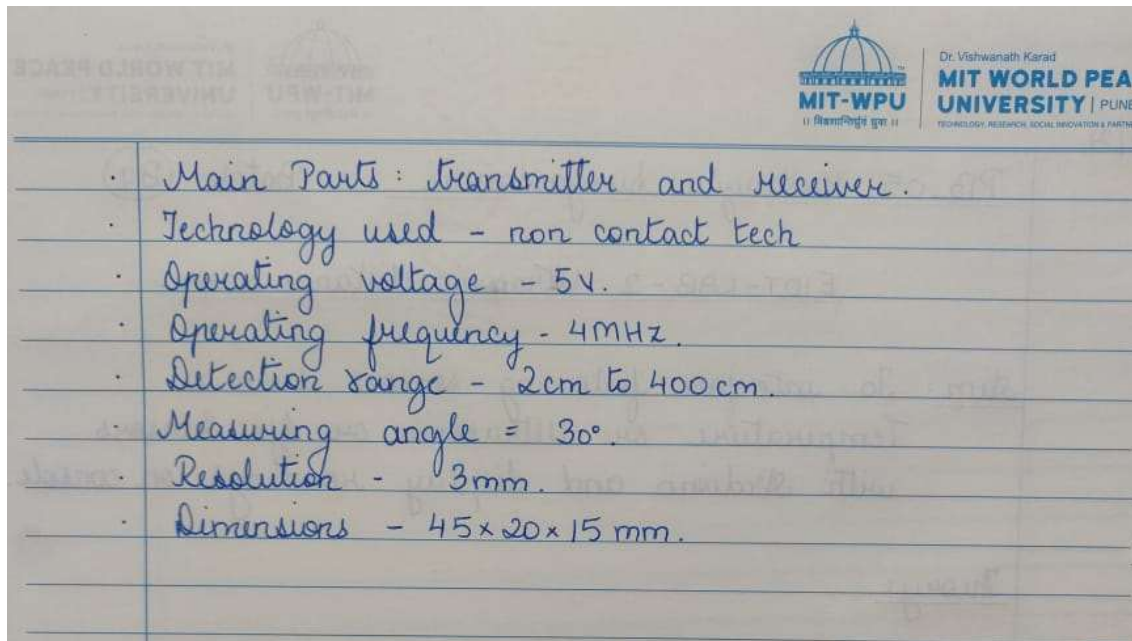 Dr. Vishwanath Karad
MIT WORLD PEA
MIT-WPU
UNIVERSITY | PUNE
TECHNOLOGY, RESEARCH, SOCIAL INNOVATION & PARTNE
· Main Parts : transmitter and receiver.
· Technology used - non contact tech
· Operating voltage - 5V.
· Operating frequency - 4MHz.
· Detection range - 2cm to 400 cm.
· Measuring angle = 30°.
· Resolution - 3mm.
· Dimensions - 45×20×15 mm.